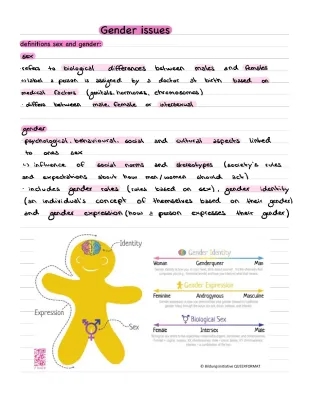 Gender issues
definitions sex and gender:
sex
·refers to biological differences between males and females
→label a person is assigned by a doctor at birth based on
medical factors (genitals, hormones, chromosomes)
· differs between male, female or intersexual
gender
psychological, behavioural, social and cultural aspects linked
to ones sex
↳ influence of social norms and stereotypes (society's rules
and expectations about how men/women should act)
· includes gender roles (roles based on sex), gender identity
(an individual's concept of themselves based on their gender)
and gender expression (how a person expresses their gender)
Identity
Expression
Sex
Gender Identity
Woman Genderqueer Man
Gender Expression
Feminine Androgynous Masculine
Biological Sex
Female Intersex Male
© Bildungsinitiative QUEERFORMAT